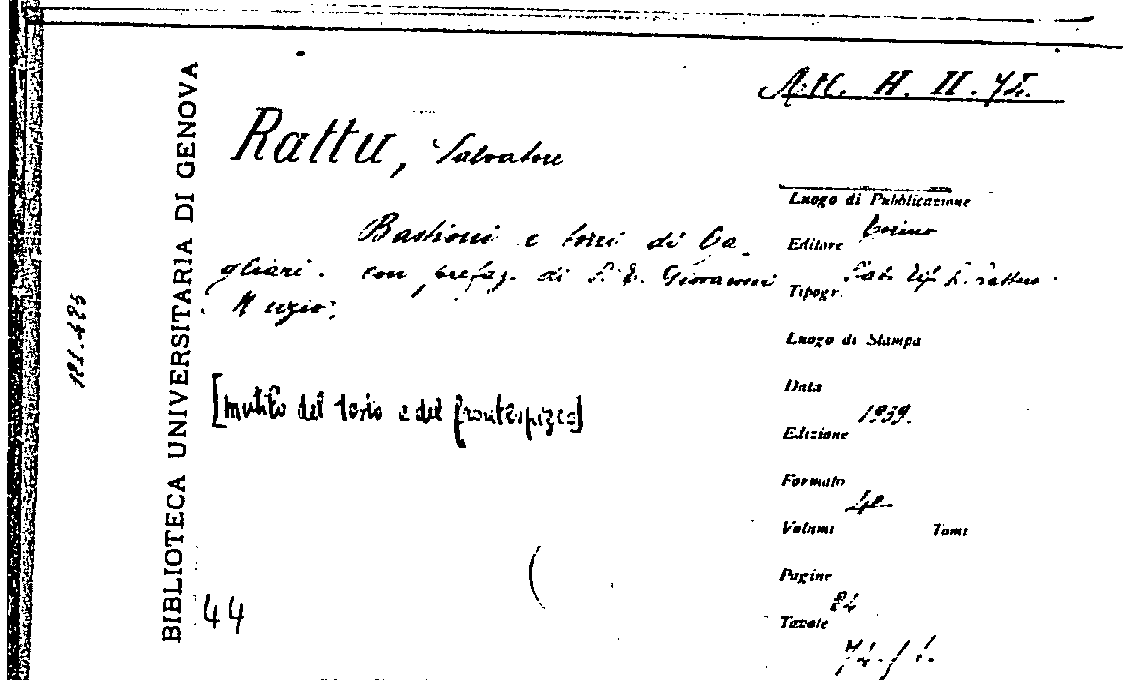 A.M. H. II. 75.
BIBLIOTECA UNIVERSITARIA DI GENOVA
Rattu, Salvatore
Bastioni e torri di Ca-
gliari. con prefaz. di S. E. Giovanni
Muzio;
[mutilo del dorso e del frontespizio]
44
Luogo di Pubblicazione
Torino
Editore
Tipogr.
Luogo di Stampa
Data
1939.
Edizione
Formato
4º
Volumi Tomi
Pagine
84
Tavole